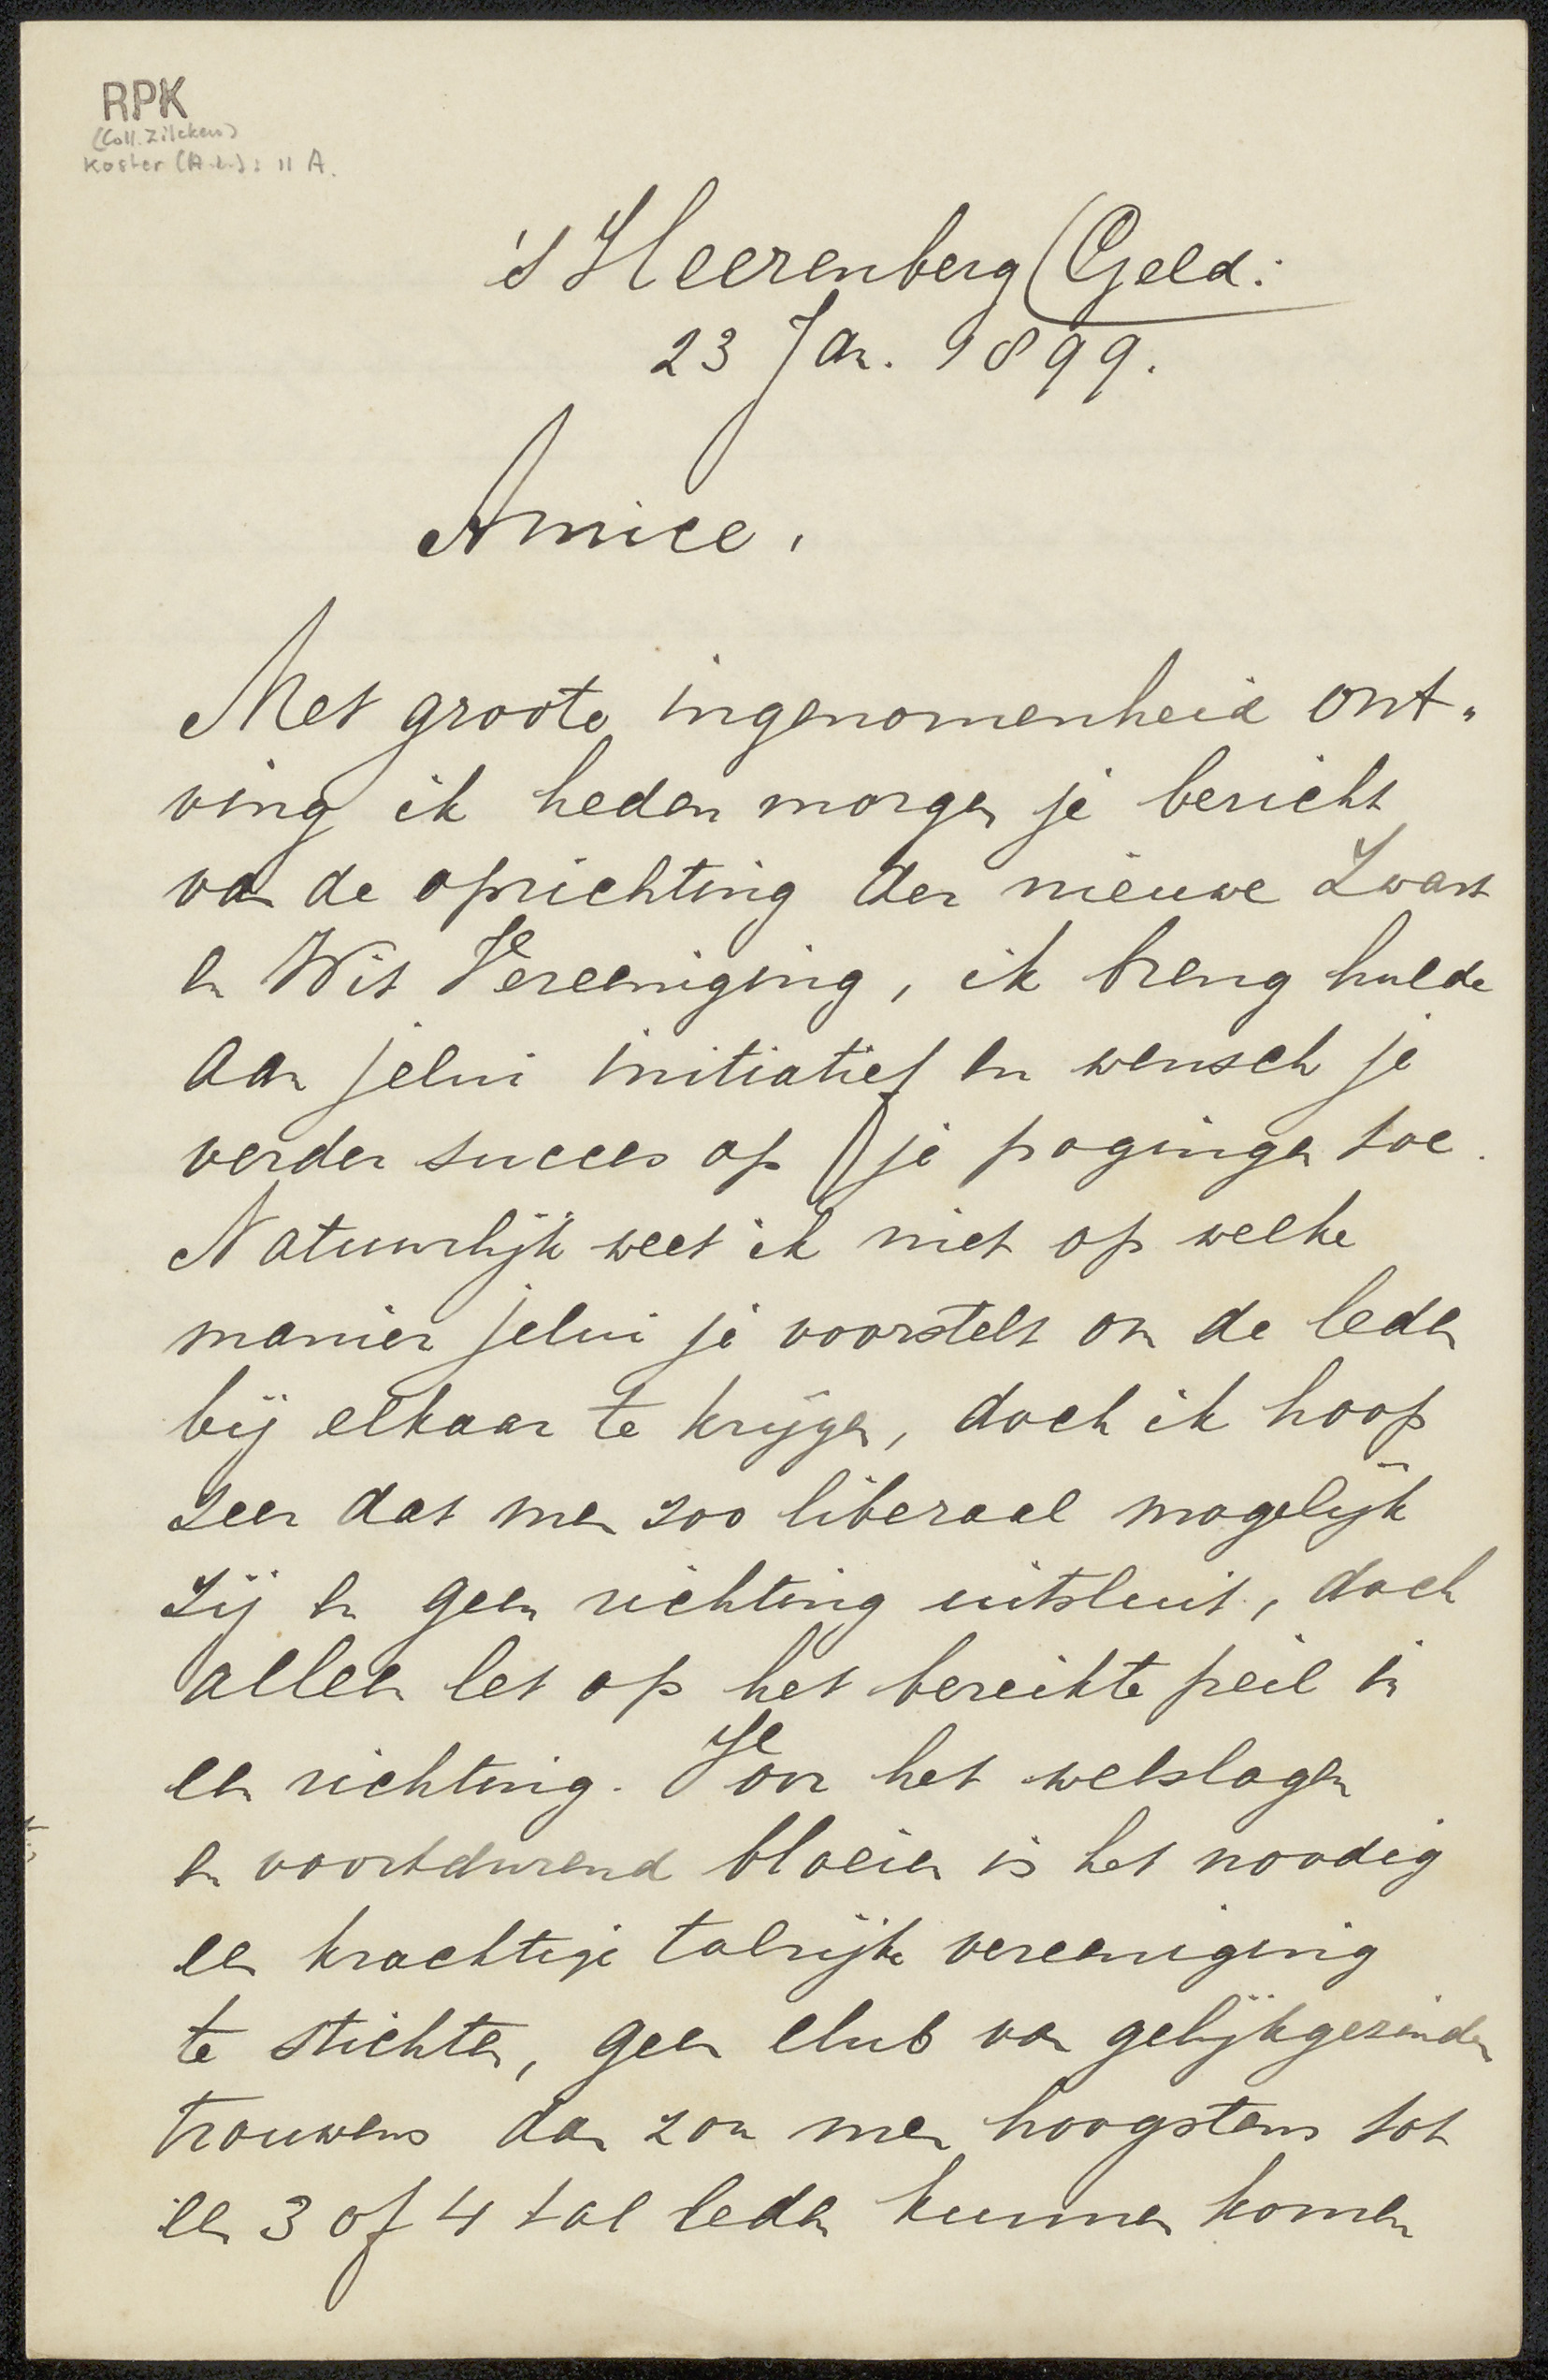 RPK
(Coll. Zilcken)
Koster (A.L.): 11 A.
's Heerenberg (Geld:
23 Jan. 1899.
Amice,
Met groote ingenomenheid ont-
ving ik heden morgen je bericht
van de oprichting der nieuwe Zwart
en Wit Vereeniging, ik breng hulde
aan jelui initiatief en wensch je
verder succes op je pogingen toe.
Natuurlijk weet ik niet op welke
manier jelui je voorstelt om de leden
bij elkaar te krijgen, doch ik hoop
zeer dat men zoo liberaal mogelijk
zij en geen richting uitsluit, doch
alleen let op het bereikte peil in
een richting. Voor het welslagen
en voortdurend bloeien is het noodig
een krachtige talrijke vereeniging
te stichten, geen club van gelijkgezinden
trouwens dan zou men hoogstens tot
een 3 of 4 tal leden kunnen komen